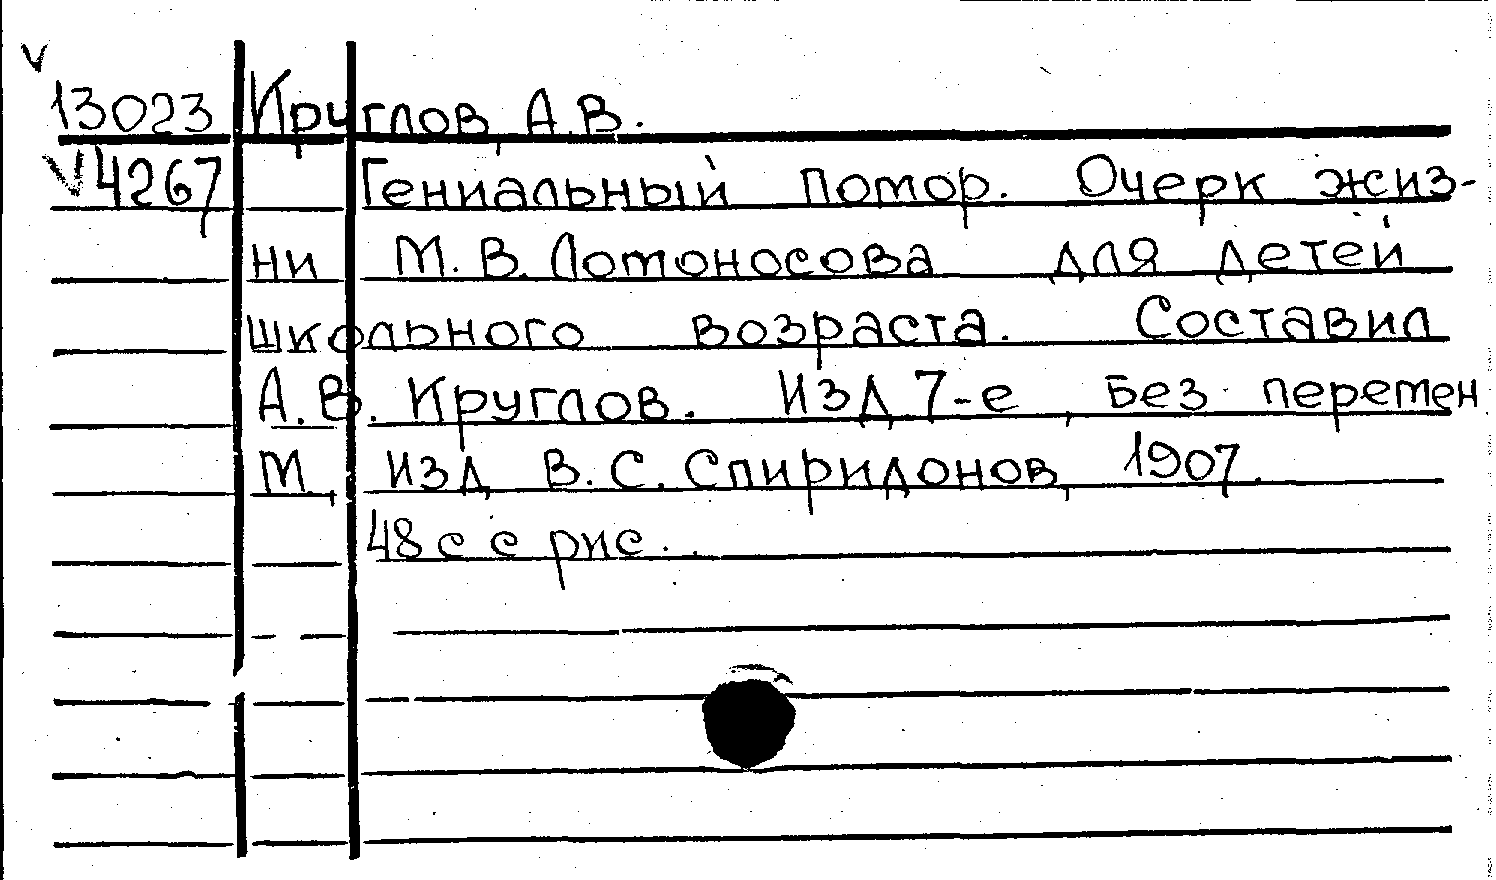 V
13023 Круглов, А.В.
V4267 Гениальный помор. Очерк жиз-
ни М.В. Ломоносова для детей
школьного возраста. Составил
А.В. Круглов. Изд 7-е, без перемен
М, изд В.С. Спиридонов, 1907.
48 с с рис..